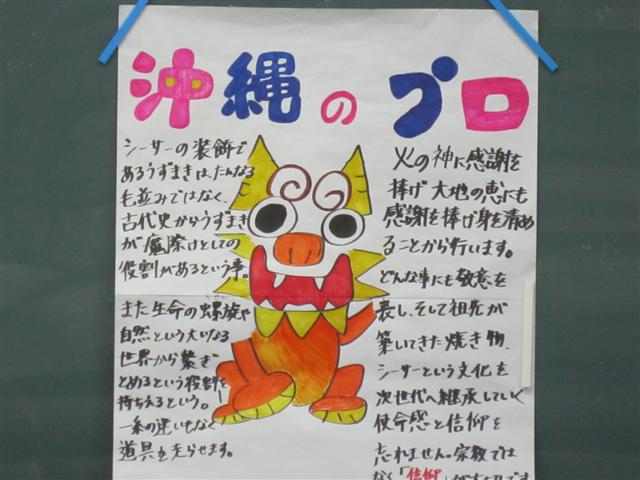 沖縄のプロ
シーサーの装飾で
あるうずまきは、たんなる
毛並みではなく、
古代史からうずまき
が魔除けとしての
役割があるという事。
また生命の螺旋や
自然という大いなる
世界から繋ぎ
とめるという役割を
持ちえるという。
一糸の迷いもなく
道具を走らせます。
火の神に感謝を
捧げ大地の恵にも
感謝を捧げ身を清め
ることから行います。
どんな事にも敬意を
表し、そして祖先が
築いてきた焼き物、
シーサーという文化を
次世代へ継承していく
使命感と信仰を
忘れません。宗教では
なく「信仰」が大切です